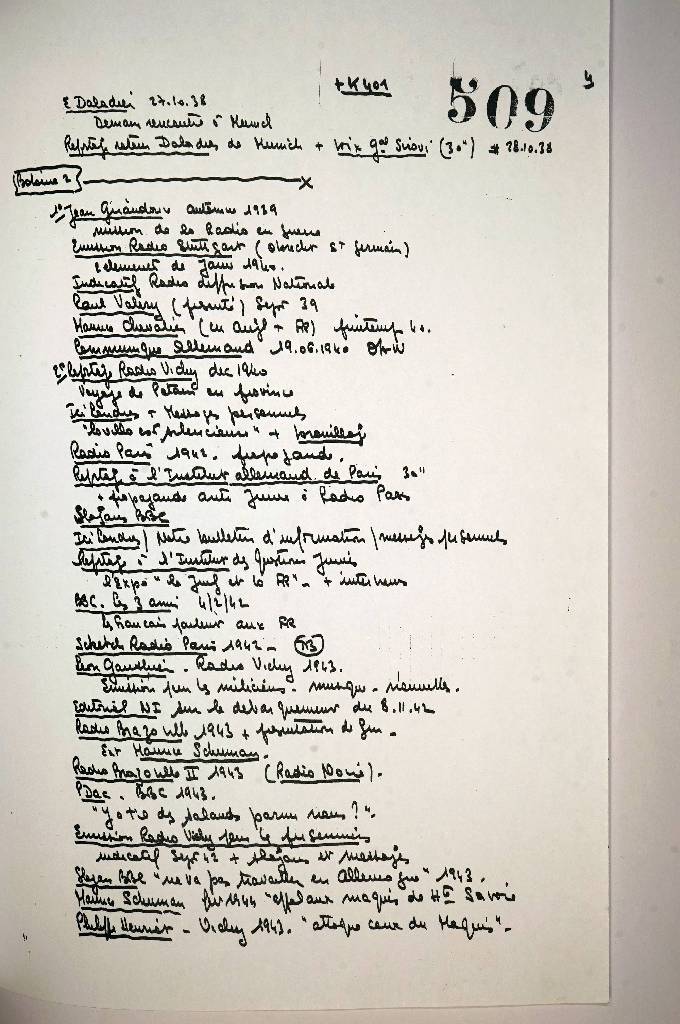 + K401
509
E Daladier 27.10.38
Demain rencontre à Munich
Reptage retour Daladier de Munich + voix gal (30") 28.10.38
Bobine 2
1° Jean Giraudoux automne 1939
mission de la Radio en guerre
Emission Radio Stuttgart ( St Germain)
de Janv 1940.
Indicatif Radio diffusion Nationale
Paul Valery ( ) Sept 39
Maurice Chevalier (en angl + FR) printemps 40.
Communiqué Allemand 19.06.1940
2° Reptage Radio Vichy dec 1940
Voyage de Petain en province
Ici Londres + Messages personnels
"la ville est silencieuse" + brouillage
Radio Paris 1942. propagande.
Reptage à l'Institut allemand de Paris 30"
+ propagande anti Juive à Radio Paris
Slogans BBC
Ici Londres / Notre bulletin d'information / messages personnels
Reptage à l'Institut des Questions Juives
l'Expo "le Juif et la FR" - + interviews
BBC. les 3 amis 4/2/42
les francais parlent aux FR
Scketch Radio Paris 1942 -
Leon Gaultier - Radio Vichy 1943.
Emission pour les miliciens - musique - nouvelles.
Editorial sur le debarquement du 8.11.42
Radio Brazaville 1943 + presentation de
Ext Maurice Schuman.
Radio Brazaville II 1943 (Radio Noire).
P Dac. BBC 1943.
"y a t'il des salauds parmi nous ?".
Emission Radio Vichy pour les prisonniers
indicatif Sept 42 + slogans et messages
Slogan BBC "ne va pas travailler en Allemagne" 1943.
Maurice Schuman fev 1944 "appel aux maquis de Hte Savoie
Philippe Henriot - Vichy 1943. "attaque ceux du Maquis" -